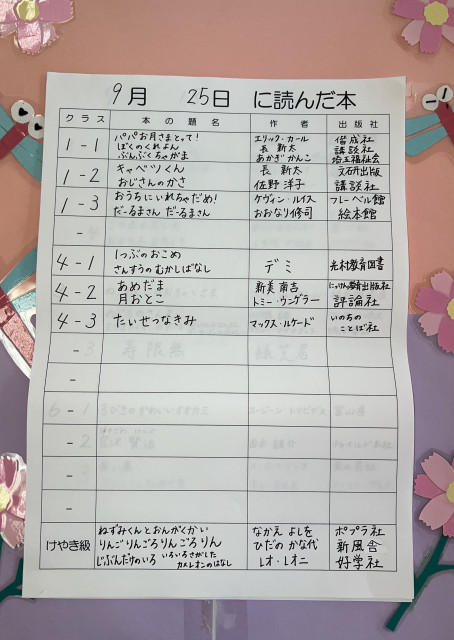 9月 25日 に読んだ本
クラス 本の題名 作者 出版社
1-1 パパお月さまとって! エリック・カール 偕成社
ぼくのくれよん 長 新太 講談社
ぶんぶくちゃがま あかぎかんこ 埼玉福祉会
1-2 キャベツくん 長 新太 文研出版
おじさんのかさ 佐野 洋子 講談社
1-3 おうちにいれちゃだめ! ケヴィン・ルイス フレーベル館
だーるまさん だーるまさん おおなり修司 絵本館
-
4-1 1つぶのおこめ デミ 光村教育図書
さんすうのむかしばなし
4-2 あめだま 新美 南吉 にっけん教育出版社
月おとこ トミー・ウンゲラー 評論社
4-3 たいせつなきみ マックス・ルケード いのちのことば社
- 3 寿限無
-
6-1
- 2 宮沢 賢治
-
-
けやき級 ねずみくんとおんがくかい なかえ よしを ポプラ社
りんごりんごろりんごろりん ひだの かな代 新風舎
じぶんだけのいろ いろいろさがしたカメレオンのはなし レオ・レオニ 好学社